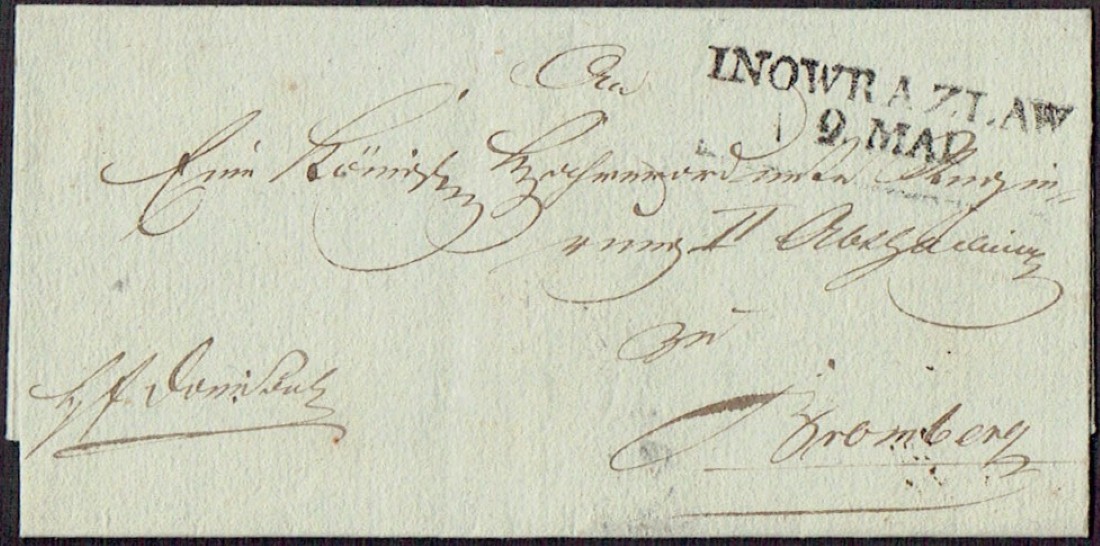 INOWRAZLAW
9. MAI
An
Eine Königl. Hochverordnete Regie-
rung II Abtheilung
zu
Bromberg